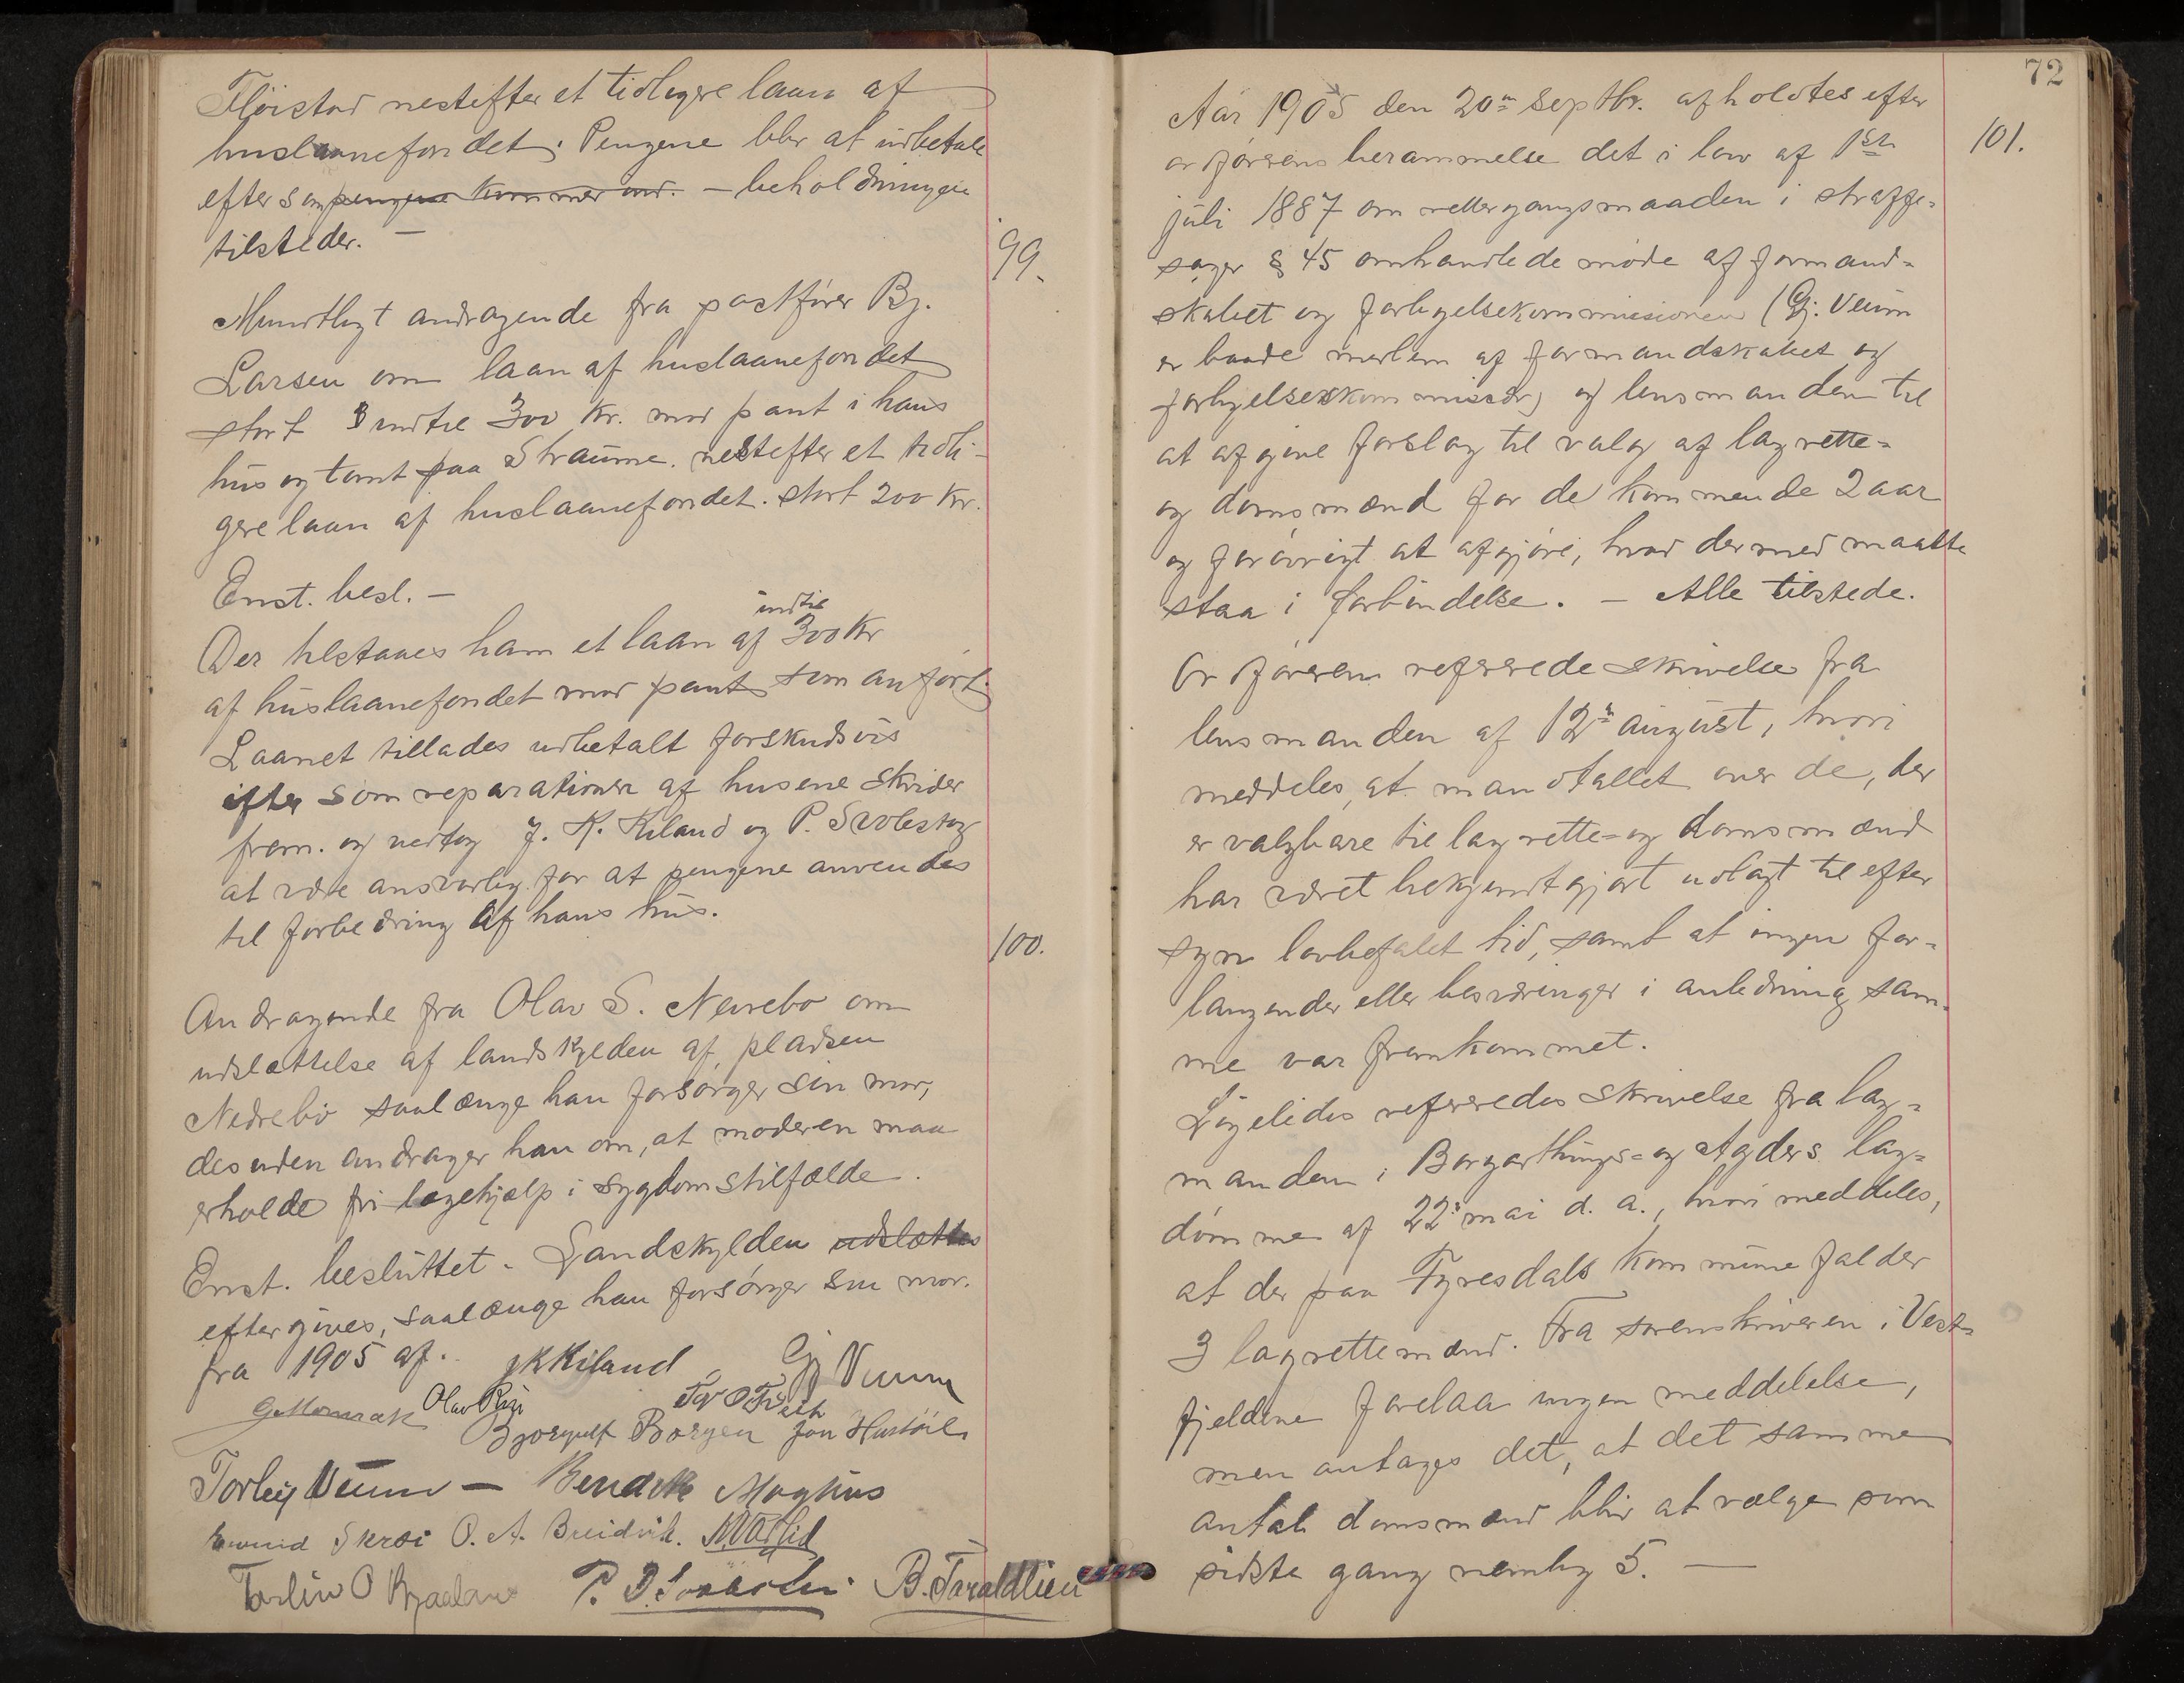 Fløistad nestefter et tidligere laan af
huslaanefondet. Pengene blir at udbetale
eftersom pengene kommer ind. – beholdningen
tilsteder. –
99.
Mundtligt andragende fra postfører Bj.
Larsen om laan af huslaanefondet
stort indtil 300 kr. mod pant i hans
hus og tomt paa Straume. nestefter et tidli-
gere laan af huslaanefondet. stort 200 kr.
Enst. besl. –
indtil
Der tilstaaes ham et laan af 300 kr
af huslaanefondet mod pant som anført
Laanet tillades udbetalt forskudsvis
efter som reparationen af husene skrider
frem. og vedtog J. K. Kiland og P.
at være ansvarlig for at pengene anvendes
til forbedring af hans hus.
100.
Andragende fra Olav S. Nedrebø om
udslættelse af landskylden af pladsen
Nedrebø saalænge han forsørger sin mor,
desuden andrager han om, at moderen maa
erholde fri lægehjælp i sygdomstilfælde.
Enst. besluttet. Landskylden udslættes
eftergives, saalænge han forsørger sin mor.
fra 1905 af. J K Kiland Gj Veum
Olav
Bjorgulf Borgen Jon
Torleif Veum – Bendik Moghus
Skræi O. A. Breidvik.
O B. Taraldlien
72
Aar 1905 den 20de septbr. afholdtes efter
101.
ordførerens berammelse det i lov af 1ste
juli 1887 om rettergangsmaaden i straffe-
sager § 45 omhandlede møde af formand-
skabet og forligelseskommissionen (Gj. Veum
er baade medlem af formandskabet og
forligelseskommissær) og lensmanden til
at afgive forslag til valg af lagrette-
og domsmænd for de kommende 2 aar
og forøvrigt at afgjøre, hvad dermed maatte
staa i forbindelse. – Alle tilstede.
Ordføreren refererede skrivelse fra
lensmanden af 12te august, hvori
meddeles, at mandtallet over de, der
er valgbare til lagrette- og domsmænd
har været bekjendtgjort udlagt til efter
syn lovbefalet tid, samt at ingen for-
langender eller besværinger i anledning sam-
me var fremkommet.
Ligeledes refereredes skrivelse fra lag-
manden i Borgarthings- og Agders lag-
dømme af 22de mai d. a., hvori meddeles,
at der paa Fyresdals kommune falder
3 lagrettemænd. Fra sorenskriveren i Vest-
fjeldene forelaa ingen meddelelse,
men antages det, at det samme
antal domsmænd blir at vælge som
sidste gang nemlig 5. —